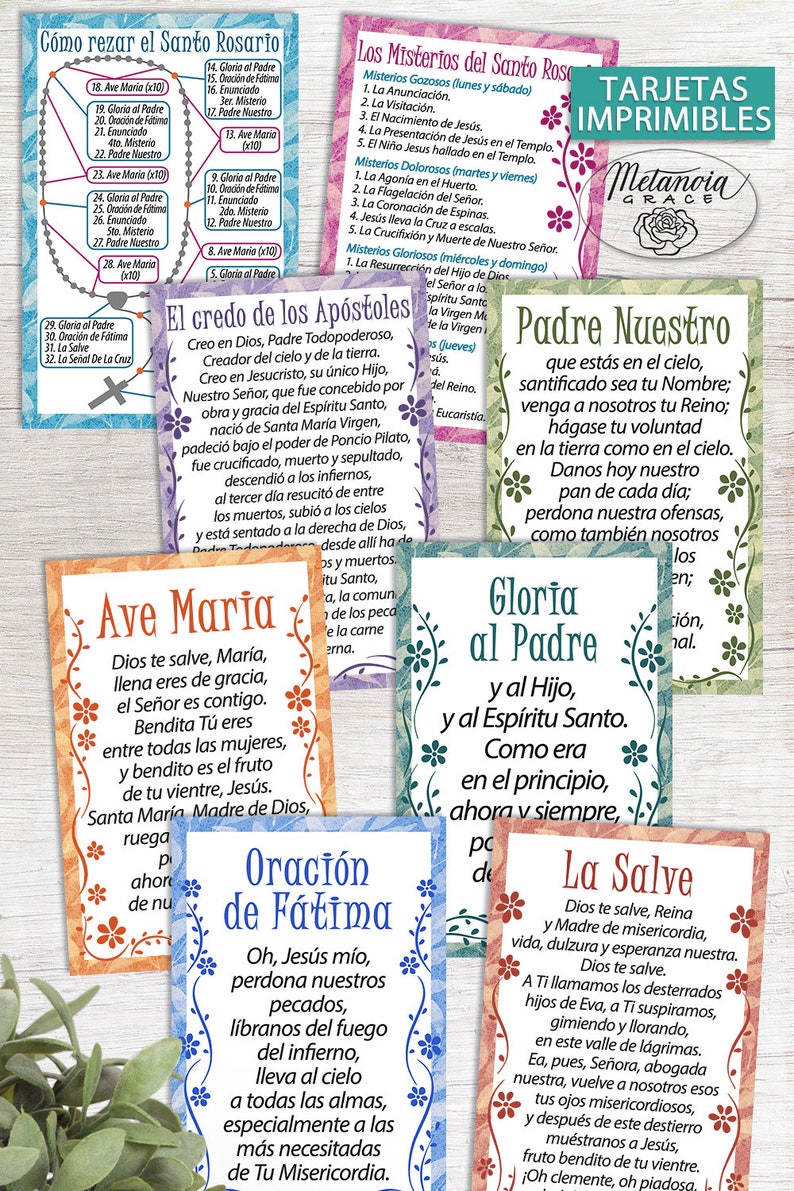 Cómo rezar el Santo Rosario
14. Gloria al Padre
15. Oración de Fátima
16. Enunciado
3er. Misterio
17. Padre Nuestro
18. Ave Maria (x10)
19. Gloria al Padre
20. Oración de Fátima
21. Enunciado
4to. Misterio
22. Padre Nuestro
13. Ave Maria
(x10)
23. Ave Maria (x10)
9. Gloria al Padre
10. Oración de Fátima
11. Enunciado
2do. Misterio
12. Padre Nuestro
24. Gloria al Padre
25. Oración de Fátima
26. Enunciado
5to. Misterio
27. Padre Nuestro
8. Ave Maria (x10)
28. Ave Maria
(x10)
5. Gloria al Padre
29. Gloria al Padre
30. Oración de Fátima
31. La Salve
32. La Señal De La Cruz
Los Misterios del Santo Rosa
Misterios Gozosos (lunes y sábado)
1. La Anunciación.
2. La Visitación.
3. El Nacimiento de Jesús.
4. La Presentación de Jesús en el Templo.
5. El Niño Jesus hallado en el Templo.
Misterios Dolorosos (martes y viernes)
1. La Agonía en el Huerto.
2. La Flagelación del Señor.
3. La Coronación de Espinas.
4. Jesús lleva la Cruz a escalas.
5. La Crucifixión y Muerte de Nuestro Señor.
Misterios Gloriosos (miércoles y domingo)
1. La Resurrección del Hijo de Dios
del Señor a los
píritu Santo
e la Virgen M
la Virgen Ma
os (jueves)
del Reino.
Eucaristía.
TARJETAS
IMPRIMIBLES
Metanoia
GRACE
El credo de los Apóstoles
Creo en Dios, Padre Todopoderoso,
Creador del cielo y de la tierra.
Creo en Jesucristo, su único Hijo,
Nuestro Señor, que fue concebido por
obra y gracia del Espíritu Santo,
nació de Santa María Virgen,
padeció bajo el poder de Poncio Pilato,
fue crucificado, muerto y sepultado,
descendió a los infiernos,
al tercer día resucitó de entre
los muertos, subió a los cielos
y está sentado a la derecha de Dios,
Padre Todopoderoso, desde allí ha de
os y muertos.
ritu Santo,
ta, la comun
n de los peca
de la carne
terna.
Padre Nuestro
que estás en el cielo,
santificado sea tu Nombre;
venga a nosotros tu Reino;
hágase tu voluntad
en la tierra como en el cielo.
Danos hoy nuestro
pan de cada día;
perdona nuestra ofensas,
como también nosotros
los
en;
ción,
nal.
Ave Maria
Dios te salve, María,
llena eres de gracia,
el Señor es contigo.
Bendita Tú eres
entre todas las mujeres,
y bendito es el fruto
de tu vientre, Jesús.
Santa María, Madre de Dios,
ruega
ahora
de nu
Gloria
al Padre
y al Hijo,
y al Espíritu Santo.
Como era
en el principio,
ahora y siempre,
po
de
Oración
de Fátima
Oh, Jesús mío,
perdona nuestros
pecados,
líbranos del fuego
del infierno,
lleva al cielo
a todas las almas,
especialmente a las
más necesitadas
de Tu Misericordia.
La Salve
Dios te salve, Reina
y Madre de misericordia,
vida, dulzura y esperanza nuestra.
Dios te salve.
A Ti llamamos los desterrados
hijos de Eva, a Ti suspiramos,
gimiendo y llorando,
en este valle de lágrimas.
Ea, pues, Señora, abogada
nuestra, vuelve a nosotros esos
tus ojos misericordiosos,
y después de este destierro
muéstranos a Jesús,
fruto bendito de tu vientre.
¡Oh clemente, oh piadosa,